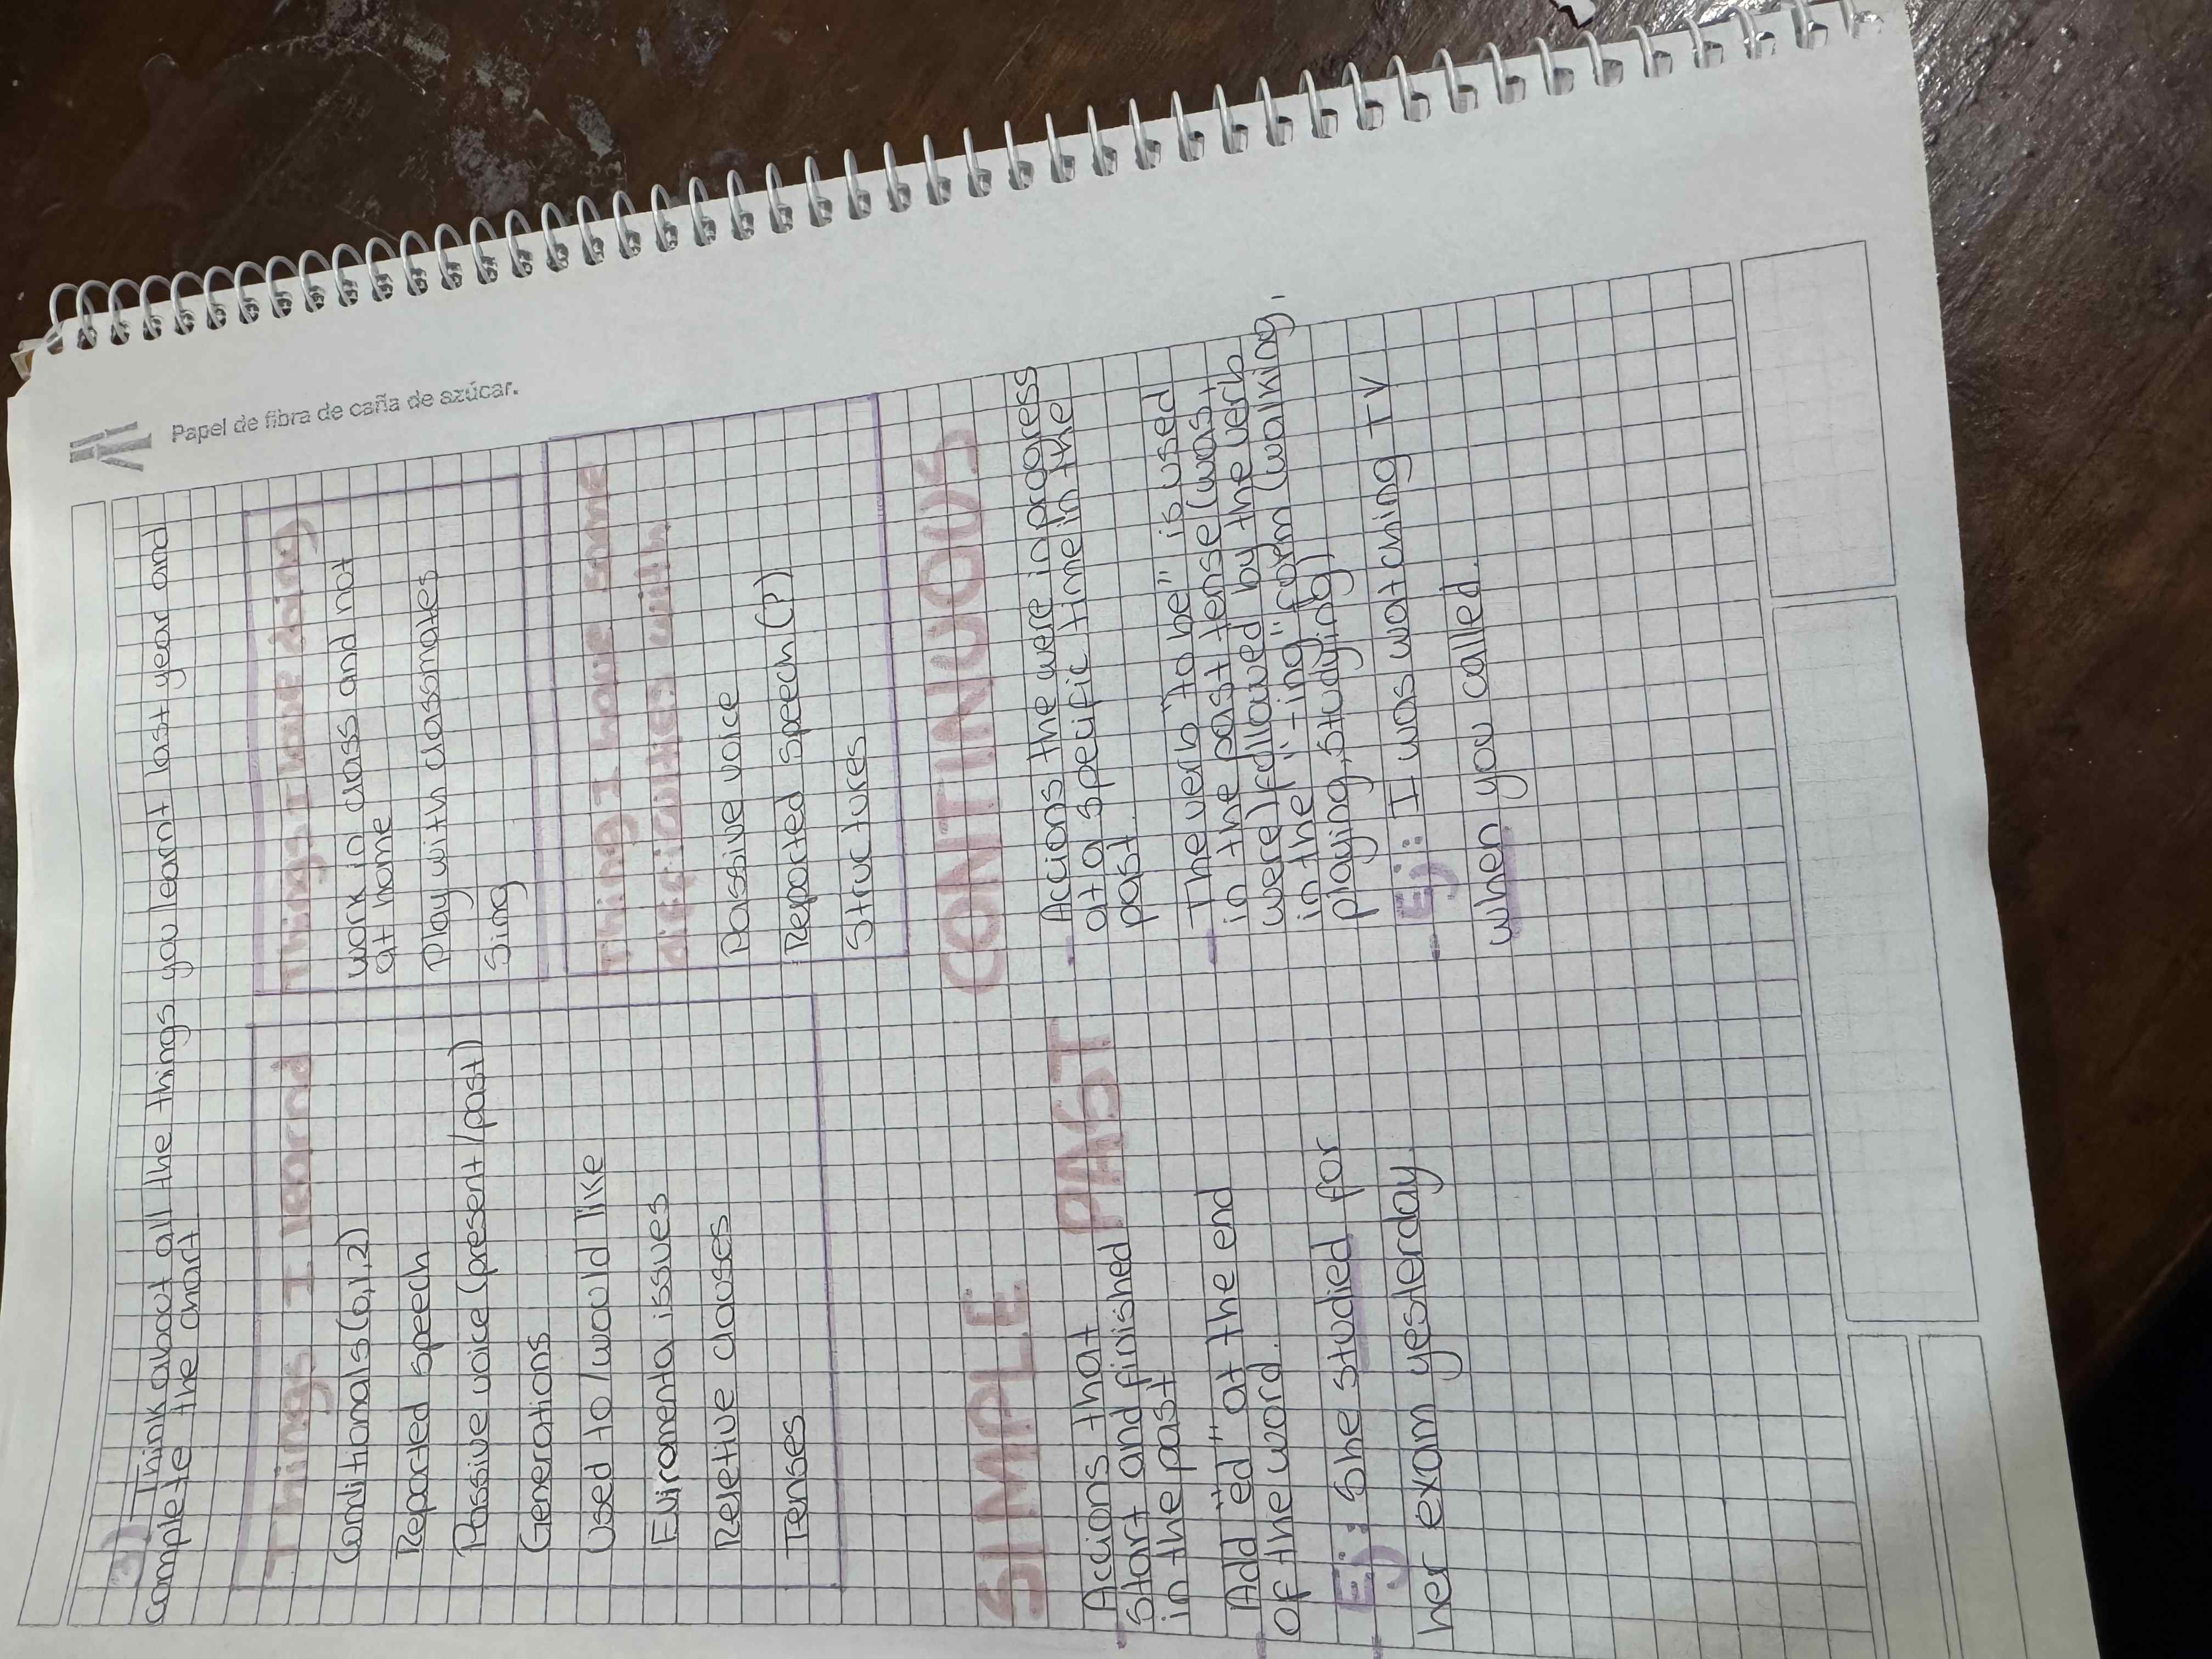 Papel de fibra de caña de azúcar.
3) Think about all the things you learnt last year and
complete the chart
Things I learnd
Conditionals (0,1,2)
Reported speech
Passive voice (present/past)
Generations
Used to/would like
Enviromental issues
Reletive clauses
Tenses
Things I love doing
work in class and not
at home
Play with classmates
Sing
Thing I have some
difficulties with
Passive voice
Reported speech (?)
Structures
SIMPLE PAST CONTINUOUS
- Accions that
start and finished
in the past.
- Add "ed" at the end
of the word.
- Ej: She studied for
her exam yesterday
- Accions the were in progress
at a specific time in the
past.
- The verb "to be" is used
in the past tense (was,
were) followed by the verb
in the "-ing" form (walking,
playing, studying)
- Ej: I was watching TV
when you called.